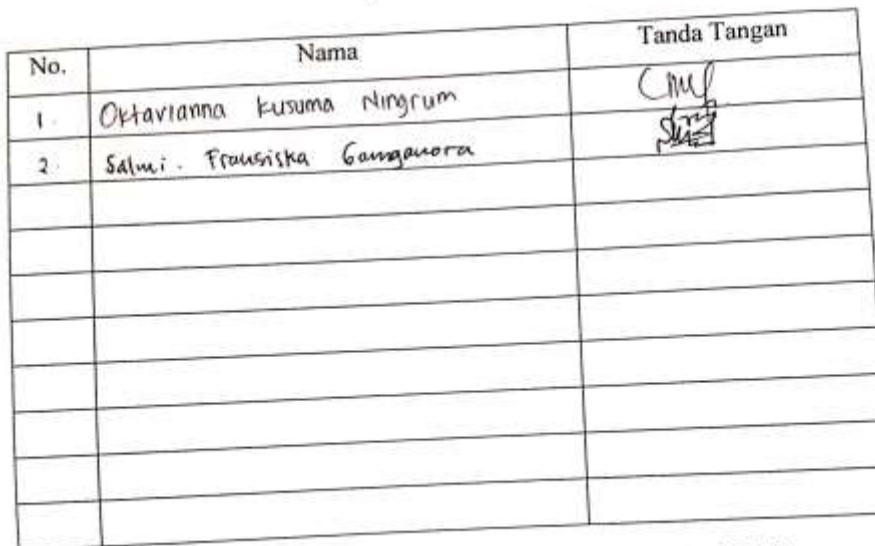 No. Nama Tanda Tangan
1. Oktavianna Kusuma Ningrum
2. Salmi. Fransiska